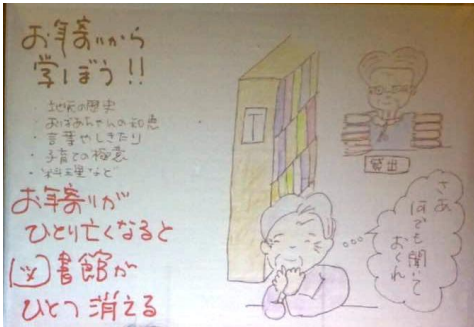 お年寄りから
学ぼう!!
・地域の歴史
・おばあちゃんの知恵
・言葉やしきたり
・子育ての極意
・料理など
お年寄りが
ひとり亡くなると
図書館が
ひとつ消える
貸出
さあ
何でも聞いて
おくれ